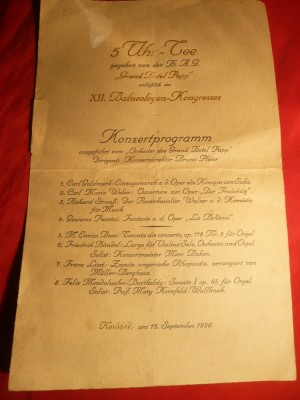 5 Uhr-Tee
gegeben von der H. A. G.
"Grand Hotel Pupp"
anläßlich des
XII. Balneologen-Kongresses
Konzertprogramm
ausgeführt vom "Orchester des Grand Hotel Pupp"
Dirigent: Konzertdirektor Bruno
1. Carl Goldmark: Einzugsmarsch a. d. Oper "Die Königin von Saba"
2. Carl Maria Weber: Ouverture zur Oper "Der Freischütz"
3. Richard Strauß: Der Rosenkavalier Walzer a. d. Komödie
für Musik
4. Giacomo Puccini: Fantasie a. d. Oper "La Bohème"
5. M. Enrico Bossi: Concerto op. 118 Nr. 6 für Orgel.
6. Friedrich Händel: Largo für Violine Solo, Orchester und Orgel.
Solist: Konzertmeister Marc
7. Franz Liszt: Zweite ungarische Rhapsodie, arrangiert von
Müller-Berghaus.
8. Felix Mendelssohn-Bartholdy: Sonate I op. 65 für Orgel.
Solist: Prof. Mary
Karlsbad, am 15. September 1930.